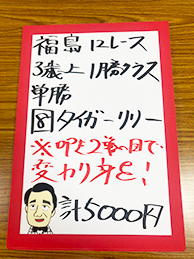 福島12レース
3歳上1勝クラス
単勝
⑧タイガーリリー
※叩き2走目で
変わり身も!
計5000円